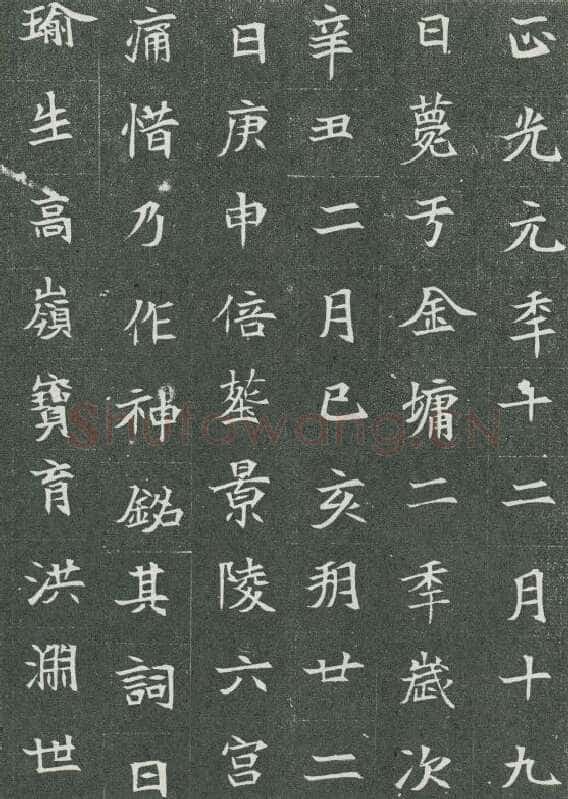 正光元秊十二月十九
日薨于金墉二秊歲次
辛丑二月己亥朔廿二
日庚申倍塟景陵六宮
痛惜乃作神銘其詞曰
瑜生高嶺寶育洪淵世
Shufawang.CN